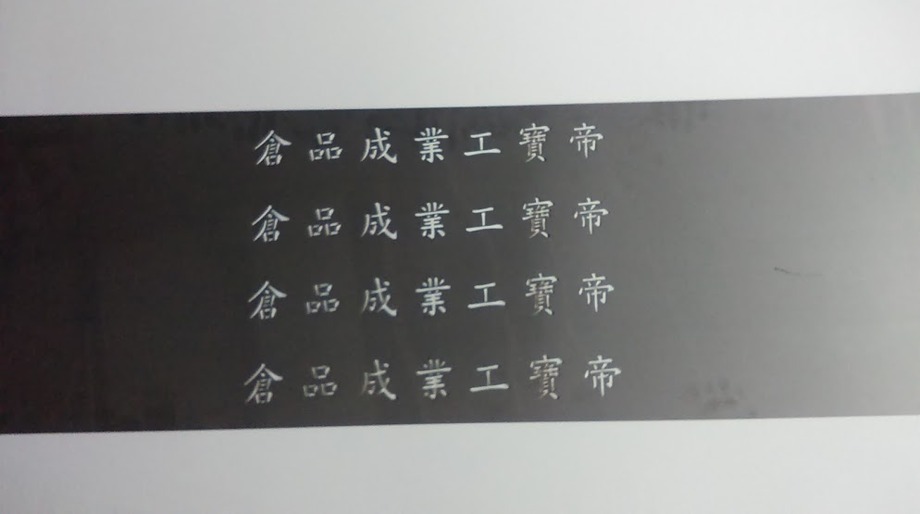 帝寶工業成品倉
帝寶工業成品倉
帝寶工業成品倉
帝寶工業成品倉